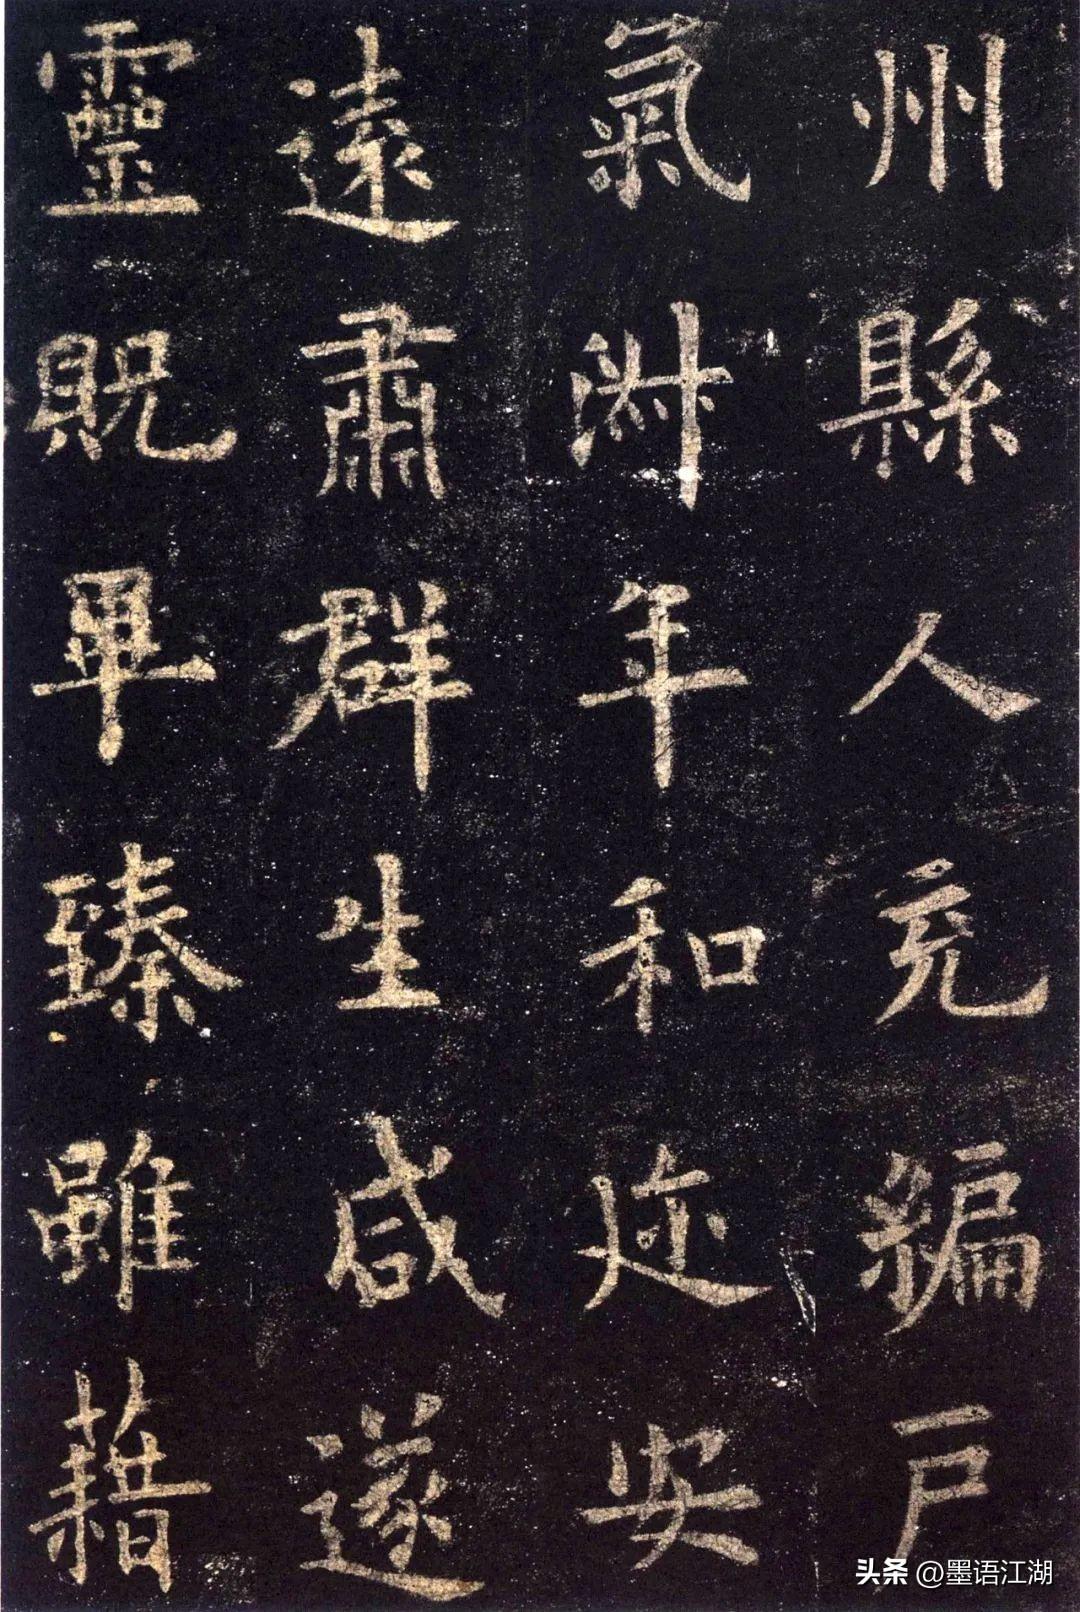 州縣人充編戶
氣淑年和迩安
遠肅群生咸遂
靈貺畢臻雖藉
头条 @墨语江湖